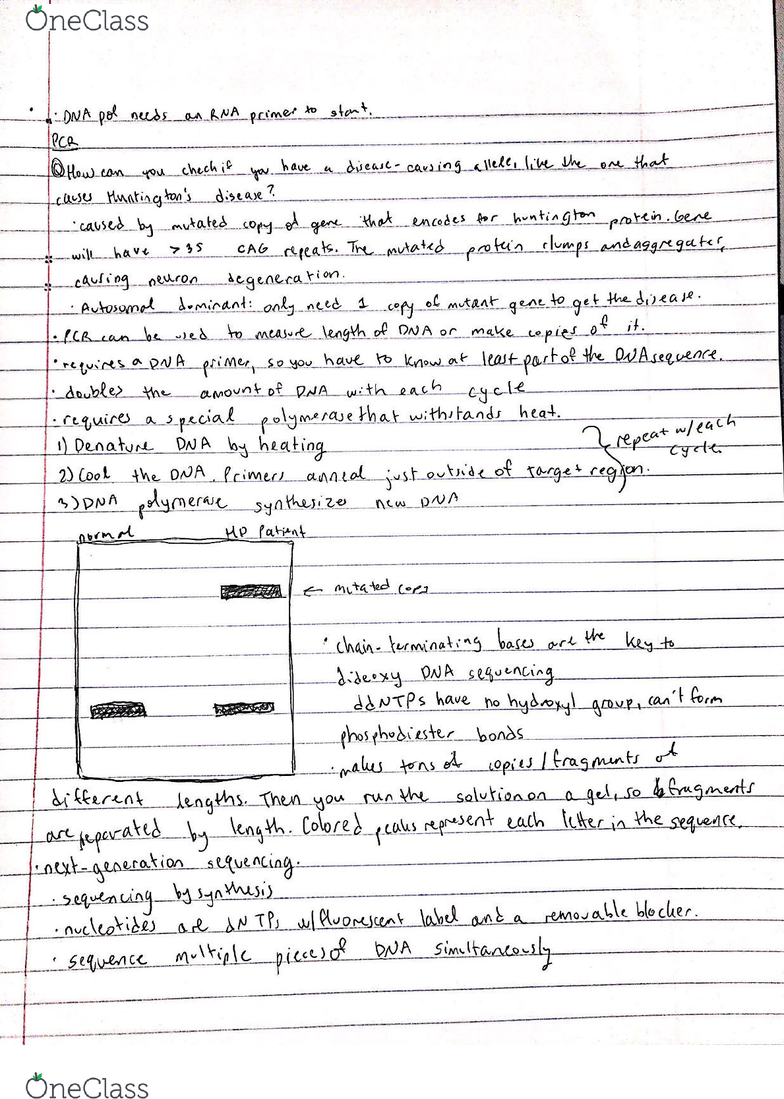 OneClass
· DNA pol needs an RNA primer to start.
PCR
Q How can you check if you have a disease-causing allele, like the one that
causes Huntington's disease?
· caused by mutated copy of gene that encodes for huntington protein. Gene
will have >35 CAG repeats. The mutated protein clumps and aggregates,
causing neuron degeneration.
· Autosomal dominant: only need 1 copy of mutant gene to get the disease.
· PCR can be used to measure length of DNA or make copies of it.
· requires a DNA primer, so you have to know at least part of the DNA sequence.
· doubles the amount of DNA with each cycle
· requires a special polymerase that withstands heat.
1) Denature DNA by heating
2) Cool the DNA. Primers anneal just outside of target region.
3) DNA polymerase synthesizes new DNA
repeat w/each
cycle.
normal HD Patient
← mutated copy
· chain-terminating bases are the key to
dideoxy DNA sequencing
ddNTPs have no hydroxyl group, can't form
phosphodiester bonds
· makes tons of copies/fragments of
different lengths. Then you run the solution on a gel, so fragments
are separated by length. Colored peaks represent each letter in the sequence.
· next-generation sequencing.
· sequencing by synthesis
· nucleotides are dNTPs w/fluorescent label and a removable blocker.
· sequence multiple pieces of DNA simultaneously
OneClass